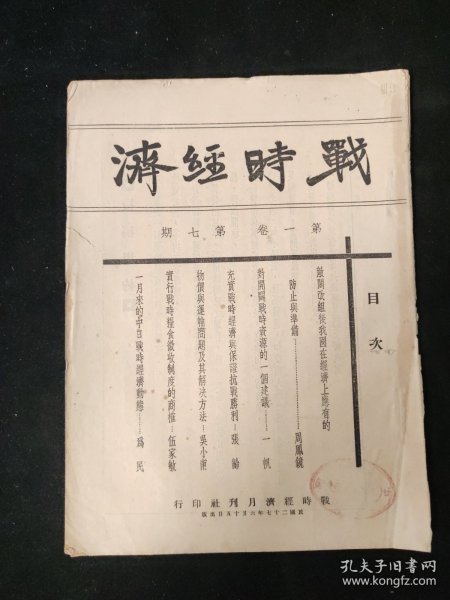 戰時經濟
第一卷 第七期
目次
敵閣改組後我國在經濟上應有的
防止與準備…………周鳳鏡
對開闢戰時資源的一個建議……一帆
充實戰時經濟與保證抗戰勝利…張
物價與運輸問題及其解決方法…吳小甫
實行戰時糧食徵收制度的商榷…伍家敏
一月來的中日戰時經濟動態……爲民
戰時經濟月刊社印行
民國二十七年六月十五日出版
孔夫子旧书网
www.kongfz.com